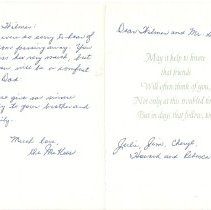 Hilmer
were so sorry to hear of
passing away. You
her very much, but
you will be a comfort
Dad
give our sincere
to your brother and
Much love,
Dear Hilmer and Mr.
May it help to know
that friends
Will often think of you,
Not only at this troubled
But in days that follow, too
Jerlie, Jim, Cheryl,
Howard and Rebecca